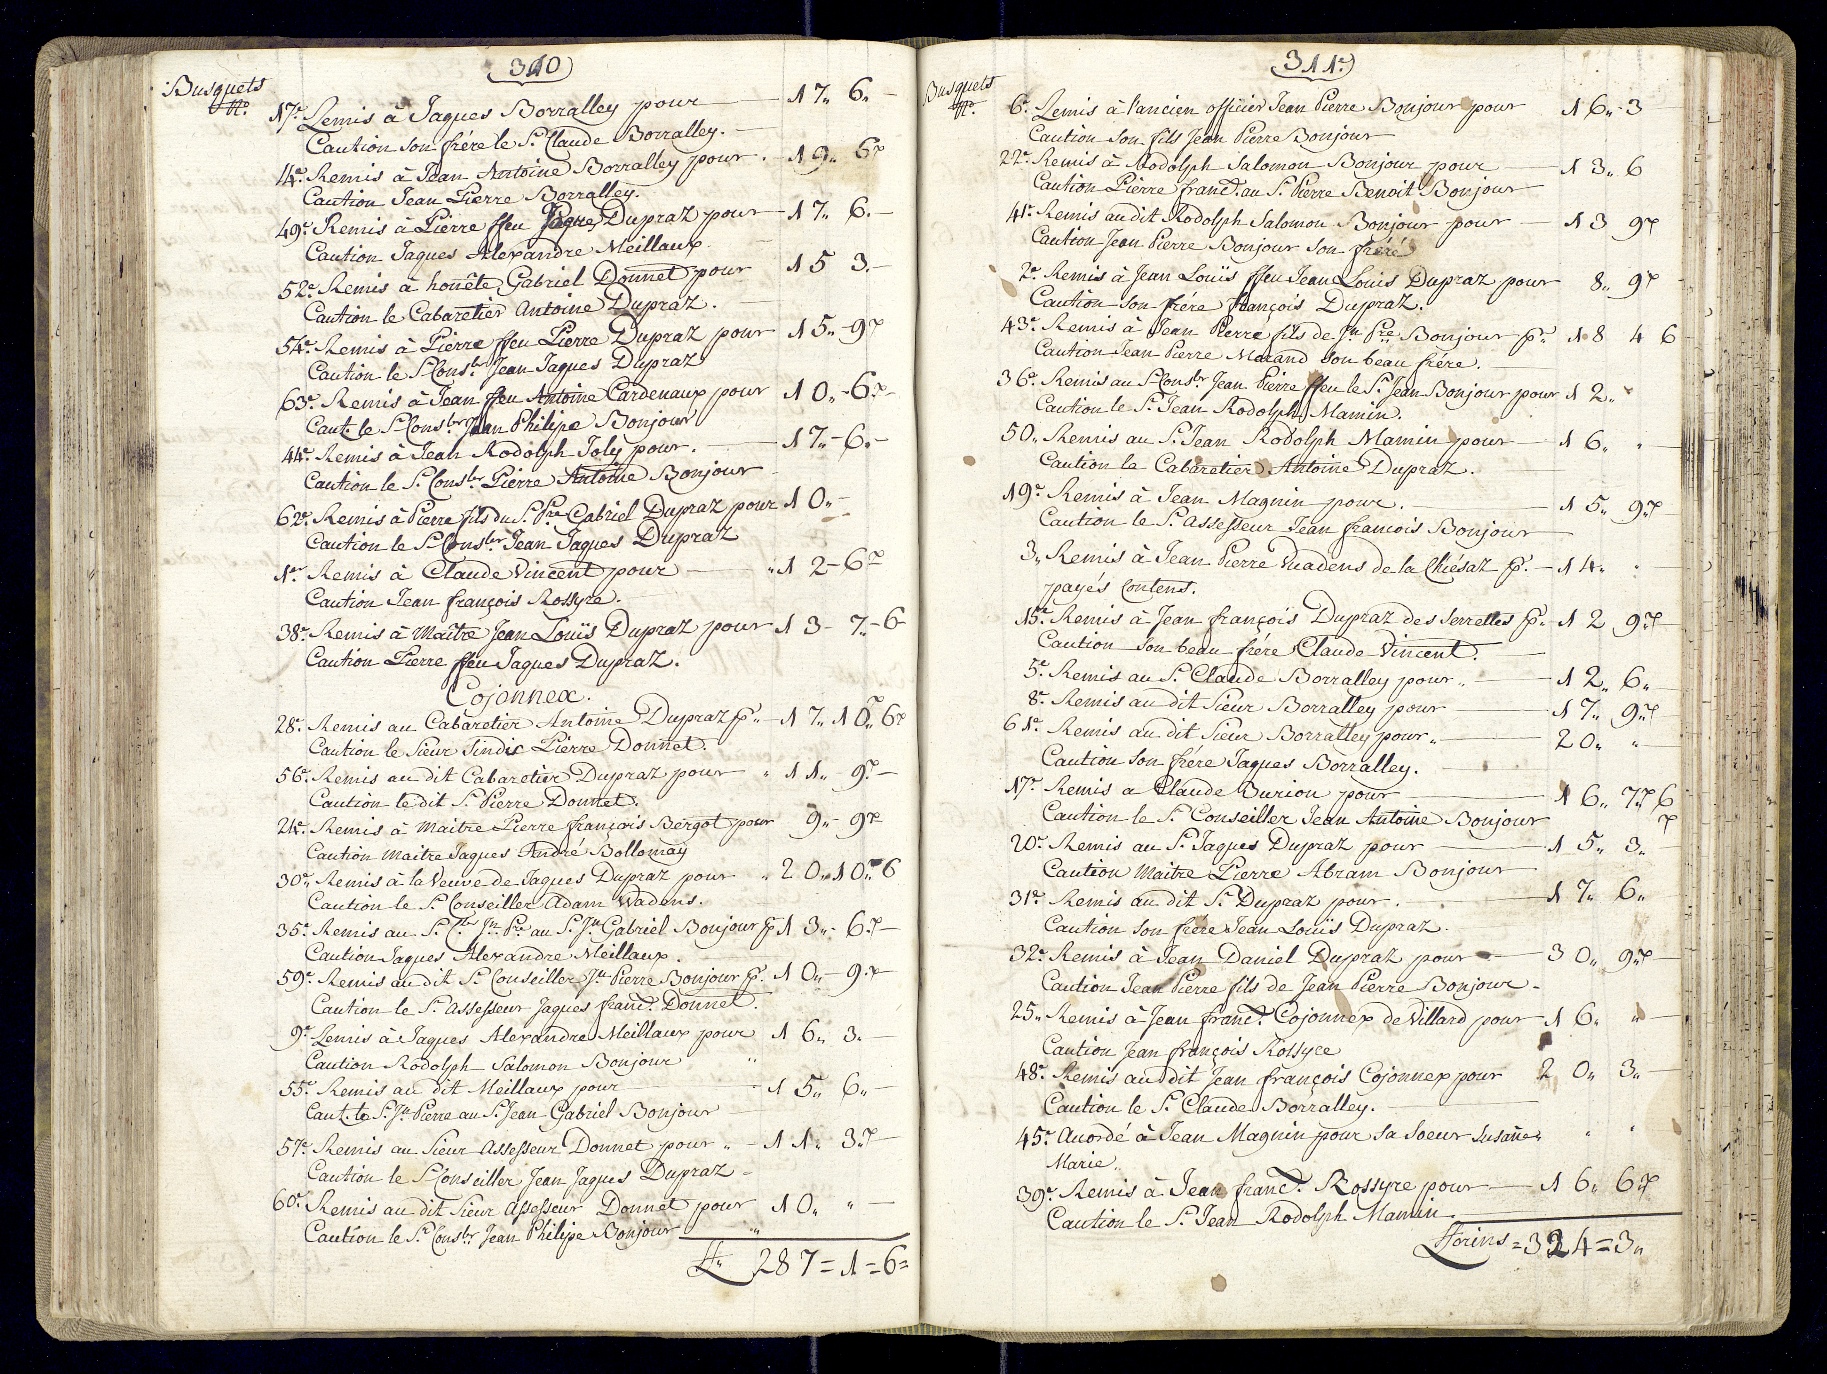 310
Busquets
No.
17e. Remis à Jaques Borralley pour 17„ 6.
Caution son frére le Sr. Claude Borralley.
14e. Remis à Jean Antoine Borralley pour. 19„ 6
Caution Jean Pierre Borralley.
49e. Remis à Pierre ffeu Jaques Dupraz pour 17„ 6.
Caution Jaques Alexandre Meillaux.
52e. Remis à honête Gabriel Donnet pour 15 3.
Caution le Cabaretier Antoine Dupraz.
54e. Remis à Pierre ffeu Pierre Dupraz pour 15„ 9
Caution le Sr. Consler. Jean Jaques Dupraz
63e. Remis à Jean ffeu Antoine Cardenaux pour 10„ 6
Caut. le Sr. Consler. Jean Philipe Bonjour
44e. Remis à Jean Rodolph Joly pour. 17„ 6.
Caution le Sr. Consler. Pierre Antoine Bonjour
62e. Remis à Pierre fils du Sr. Pre. Gabriel Dupraz pour 10„
Caution le Sr. Consler. Jean Jaques Dupraz
1er. Remis à Claude Vincent pour „ 12 6
Caution Jean françois Rossyre.
38e. Remis à Maître Jean Louïs Dupraz pour 13 7„ 6
Caution Pierre ffeu Jaques Dupraz.
Cojonnex.
28e. Remis au Cabaretier Antoine Dupraz pr. 17„ 10„ 6
Caution le Sieur Sindic Pierre Donnet.
56e. Remis au dit Cabaretier Dupraz pour „ 11„ 9
Caution le dit Sr. Pierre Donnet.
24e. Remis à Maitre Pierre françois Bergot pour 9„ 9
Caution Maitre Jaques André Bollomay
30e. Remis à la Veuve de Jaques Dupraz pour „ 20„ 10„ 6
Caution le Sr. Conseiller Adam Wadens.
35e. Remis au Sr. Cller. Jn. Pre. au Sr. Jn. Gabriel Bonjour pr. 13„ 6
Caution Jaques Alexandre Meillaux.
59e. Remis au dit Sr. Conseiller Jn. Pierre Bonjour pr. 10„ 9
Caution le Sr. Assesseur Jaques franc. Donnet.
9e. Remis à Jaques Alexandre Meillaux pour 16„ 3.
Caution Rodolph Salomon Bonjour „
55e. Remis au dit Meillaux pour 15„ 6„
Caut. le Sr. Jn. Pierre au Sr. Jean Gabriel Bonjour
57e. Remis au Sieur Assesseur Donnet pour „ 11„ 3
Caution le Sr. Conseiller Jean Jaques Dupraz
60e. Remis au dit Sieur Assesseur Donnet pour 10„ „
Caution le Sr. Consler. Jean Philipe Bonjour „
ff„ 287=1=6=
311.
Busquets
No.
6e. Remis à l'ancien officier Jean Pierre Bonjour pour 16„ 3
Caution son fils Jean Pierre Bonjour
22e. Remis à Rodolph Salomon Bonjour pour 13„ 6
Caution Pierre franc. au Sr. Pierre Benoit Bonjour
41e. Remis au dit Rodolph Salomon Bonjour pour 13 9
Caution Jean Pierre Bonjour son frére
2e. Remis à Jean Louïs ffeu Jean Louis Dupraz pour 8„ 9
Caution son frére françois Dupraz.
43e. Remis à Jean Pierre fils de Jn. Pre. Bonjour pr. 18 4 6
Caution Jean Pierre Morand son beau frére.
36e. Remis au Sr. Consler. Jean Pierre ffeu le Sr. Jean Bonjour pour 12„ „
Caution le Sr. Jean Rodolph Mamin.
50„ Remis au Sr. Jean Rodolph Mamin pour 16„ „
Caution le Cabaretier Antoine Dupraz.
19e. Remis à Jean Magnin pour. 15„ 9
Caution le Sr. Assesseur Jean francois Bonjour
3„ Remis à Jean Pierre Vuadens de la Chiésaz pr. 14„ „
payés Contens.
15e. Remis à Jean françois Dupraz des Serrettes pr. 12 9
Caution son beau frére Claude Vincent.
5e. Remis au Sr. Claude Borralley pour„ 12„ 6„
8e. Remis au dit Sieur Borralley pour 17„ 9
61e. Remis au dit Sieur Borralley pour„ 20„ „
Caution son frére Jaques Borralley.
17e. Remis a Claude Burion pour 16„ 7 6
Caution le Sr. Conseiller Jean Antoine Bonjour
20e. Remis au Sr. Jaques Dupraz pour 15„ 3„
Caution Maitre Pierre Abram Bonjour
31e. Remis au dit Sr. Dupraz pour. 17„ 6„
Caution son frére Jean Louïs Dupraz.
32e. Remis à Jean Daniel Dupraz pour 30„ 9
Caution Jean Pierre fils de Jean Pierre Bonjour
25„ Remis à Jean franc. Cojonnex de Villard pour 16„ „
Caution Jean françois Rossyre
48e. Remis au dit Jean françois Cojonnex pour 20„ 3„
Caution le Sr. Claude Borralley.
45e. Acordé à Jean Magnin pour sa Soeur Susañe „ „
Marie„
39e. Remis à Jean franc. Rossyre pour 16„ 6
Caution le Sr. Jean Rodolph Mamin.
fforins=324=3„